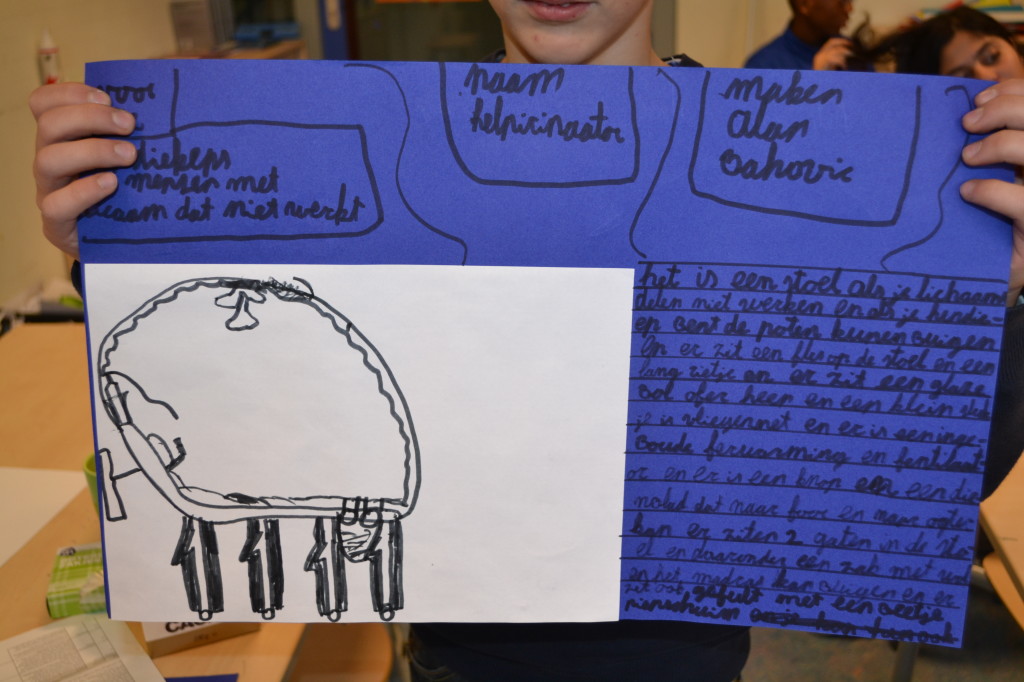 voor
diekeps
mensen met
licaam dat niet werkt
naam
helpicinaator
maken
Alan
het is een stoel als je lichaams
delen niet werken en als je
de poten kunnen buigen
en er zit een fles op de stoel en een
lang rietje en er zit een glaze
bol ofer heen en een klein stuk
je is vliegennet en er is een inge-
boude ferwarming en fentilaat
or en er is een knop en een die
dat naar foor en naar agter
kan er ziten 2 gaten in de sto
el en daaronder een zak met
en het kan buigen en er
zit gefult met een beetje